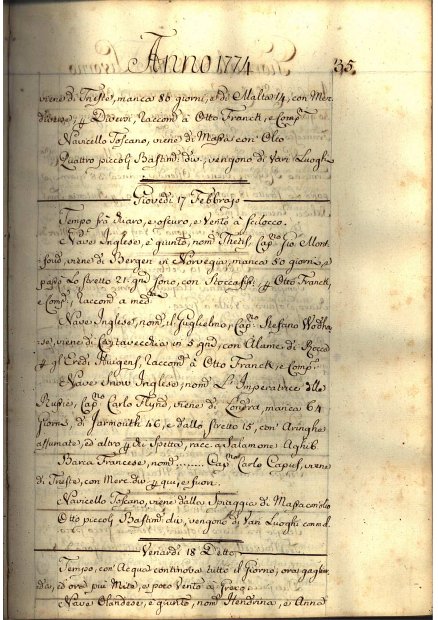 Anno 1774
35.
viene di Trieste, manca 86 giorni, e di Malta 14, con Mer-
Diversi, Raccom.ᵈ à Otto Franck, e Comp.
Navicello Toscano, viene di Massa con Olio
Quattro piccoli Bastim.ᵗⁱ div., vengono di Vari Luoghi
Giovedi 17 Febbrajo
Tempo frà Chiaro, e oscuro, e Vento à Scilocco.
Nave Inglese, è giunto, nom.ᵗᵃ Thetis, Cap.ⁿᵒ Gio Mont-
ford, viene di Bergen in Norvegia, manca 50 giorni, e
passò Lo Stretto 21. gni sono, con Stoccafiss: Otto Franck,
e Comp. Raccom à med.
Nave Inglese, nom. il Guglielmo, Cap.ⁿᵒ Stefano Wodha-
se, viene di Civitavecchia in 5 gni, con Alume di Rocca
gl'Eredi Huigens, Raccom à Otto Franck, e Comp:
Nave Snow Inglese, nom. L'Imperatrice delle
Russie, Cap.ⁿᵒ Carlo Flynd, viene di Londra, manca 64
Giorni, di Jarmouth 46, e dallo Stretto 15, con Aringhe
affumate, ed altro di Spetta, racc. a Salamone Aghib.
Barca Francese, nom. ........ Cap.ⁿᵒ Carlo Capus, viene
di Trieste, con Merc. div. qui, e fuori.
Navicello Toscano, viene dalla Spiaggia di Massa con Olio
Otto piccoli Bastim.ᵗⁱ div, vengono di Vari Luoghi con
Venardi 18 Detto
Tempo, con Acqua continova tutto il Giorno, ora gagliar-
da, ed ora più Mite, e poco Vento à Greco.
Nave Olandese, è giunto, nom. Hendrina, e Anna